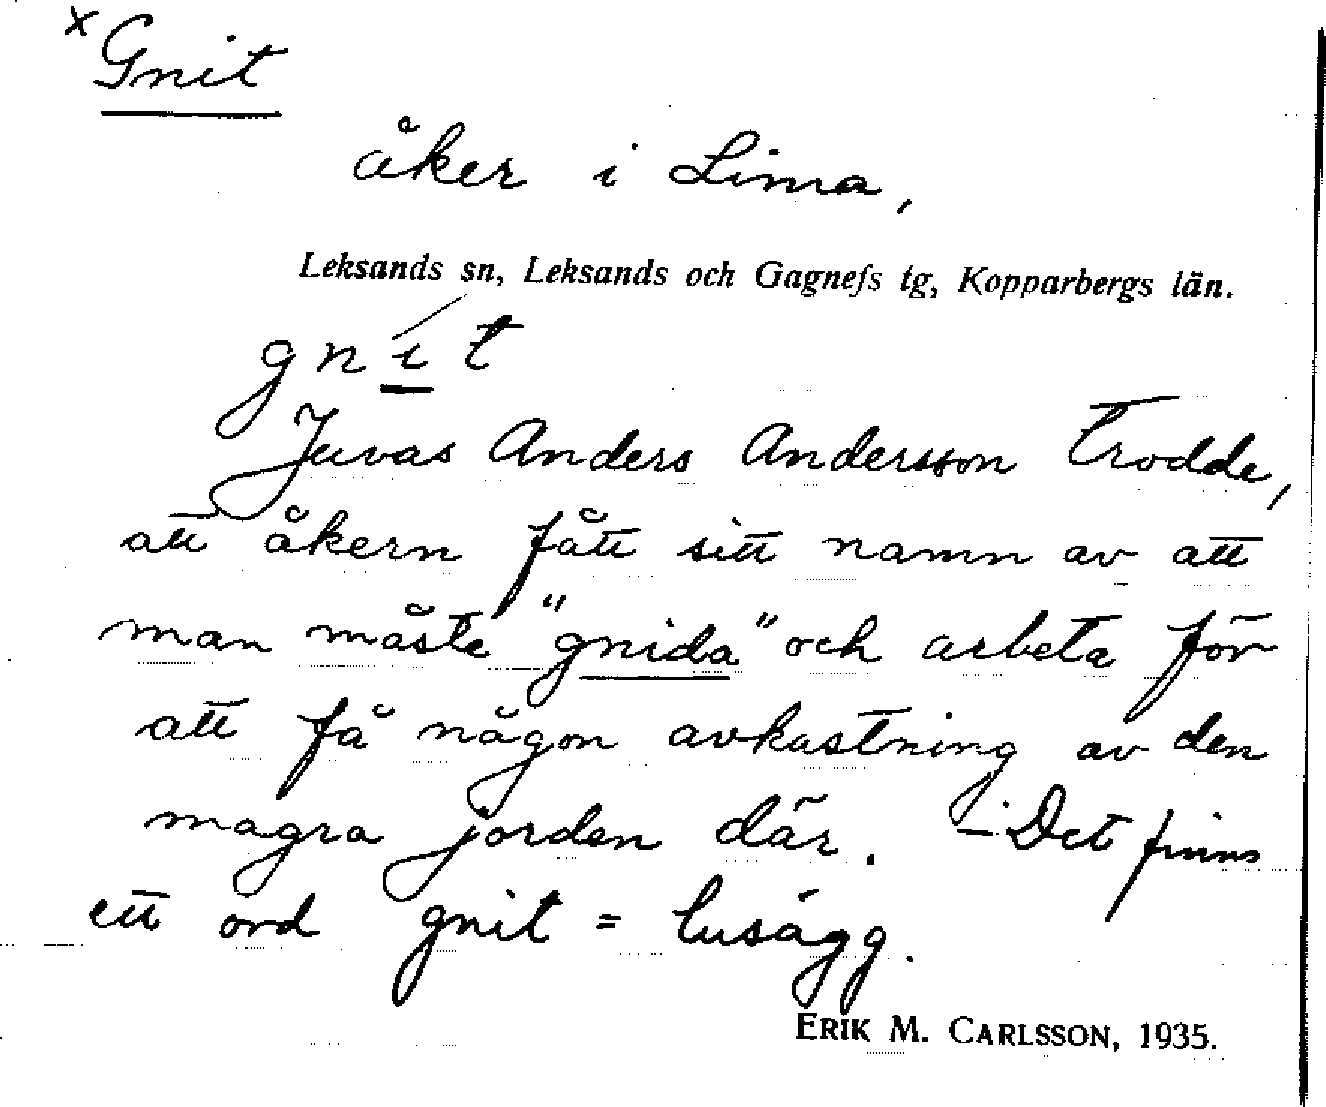 x Gnit
åker i Lima,
Leksands sn, Leksands och Gagnefs tg, Kopparbergs län.
gnit
Juvas Anders Andersson trodde,
att åkern fått sitt namn av att
man måste "gnida" och arbeta för
att få någon avkastning av den
magra jorden där. – Det finns
ett ord gnit = lusägg.
ERIK M. CARLSSON, 1935.